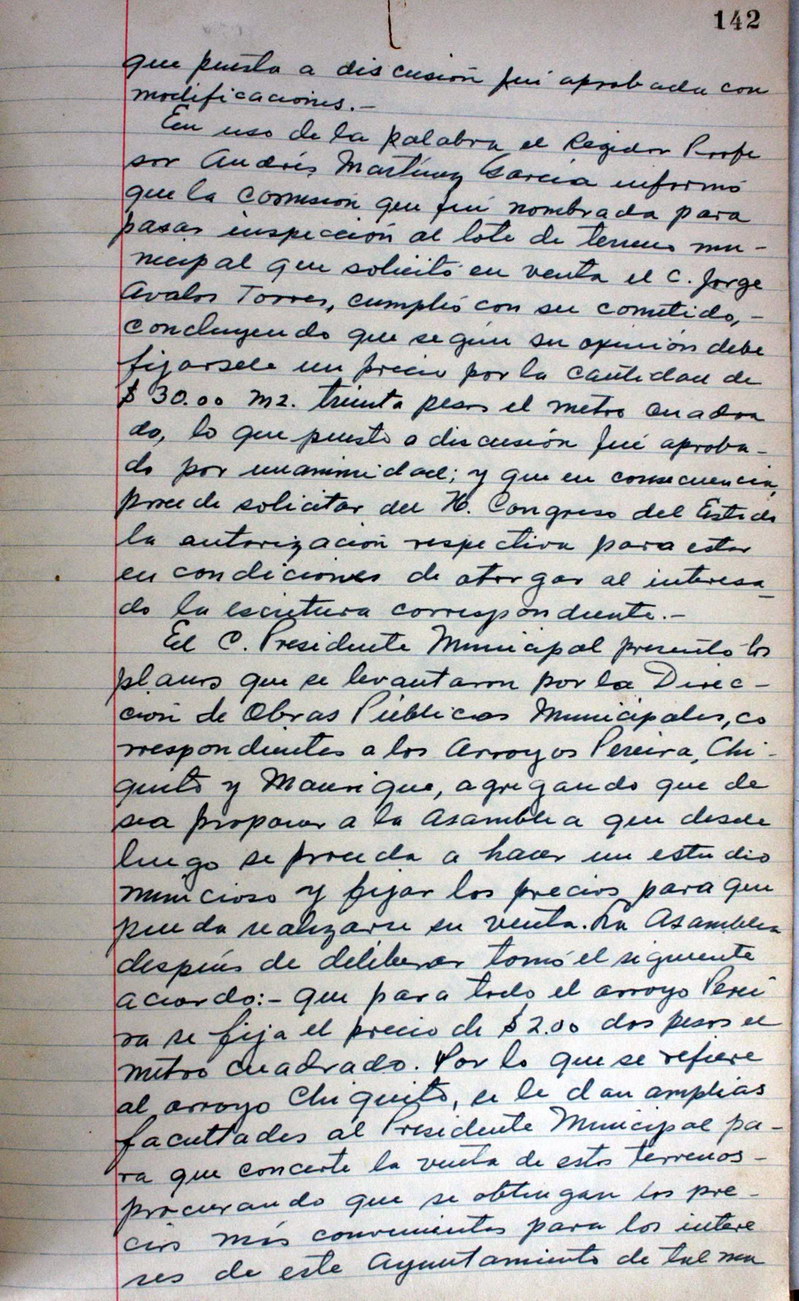 142
que puesta a discusión fué aprobada con
modificaciones.-
En uso de la palabra el Regidor Profe
sor Andrés Martínez García informó
que la comisión que fué nombrada para
pasar inspección al lote de terreno mu-
nicipal que solicitó en venta el C. Jorge
Avalos Torres, cumplió con su cometido,-
concluyendo que según su opinión debe
fijarsele un precio por la cantidad de
$ 30.00 m2. treinta pesos el metro cuadra
do, lo que puesto a discusión fué aproba-
do por unanimidad; y que en consecuencia,
procede solicitar del H. Congreso del Estado
la autorización respectiva para estar
en condiciones de otorgar al interesa-
do la escritura correspondiente.-
El C. Presidente Municipal presentó los
planos que se levantaron por la Direc-
ción de Obras Públicas Municipales, co
rrespondientes a los Arroyos Pereira, Chi-
quito y Manrique, agregando que de
sea proponer a la Asamblea que desde
luego se proceda a hacer un estudio
municioso y fijar los precios para que
pueda realizarse su venta. La Asamblea
después de deliberar tomó el siguiente
acuerdo:- que para todo el arroyo Perei
ra se fija el precio de $2.00 dos pesos el
metro cuadrado. Por lo que se refiere
al arroyo Chiquito, se le dan amplias
facultades al Presidente Municipal pa-
ra que concerte la venta de estos terrenos-
procurando que se obtengan los pre-
cios más convenientes para los intere
ses de este Ayuntamiento de tal ma